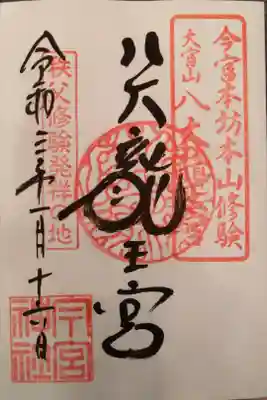 今宮本坊本山修験
大宮山
八大龍王宮
秩父修験発祥の地
令和三年一月十六日
今宮
神社